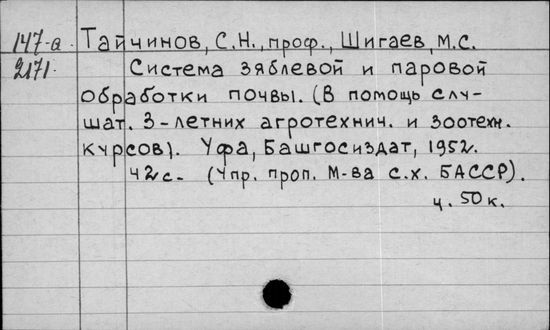 147-а. Тайчинов, С.Н., проф., Шигаев, М.С.
2171.
Система зяблевой и паровой
обработки почвы. (В помощь слу-
шат. 3-летних агротехнич. и зоотехн.
курсов). Уфа, Башгосиздат, 1952.
42 с. (Упр. проп. М-ва с.х. БАССР).
ц. 50 к.